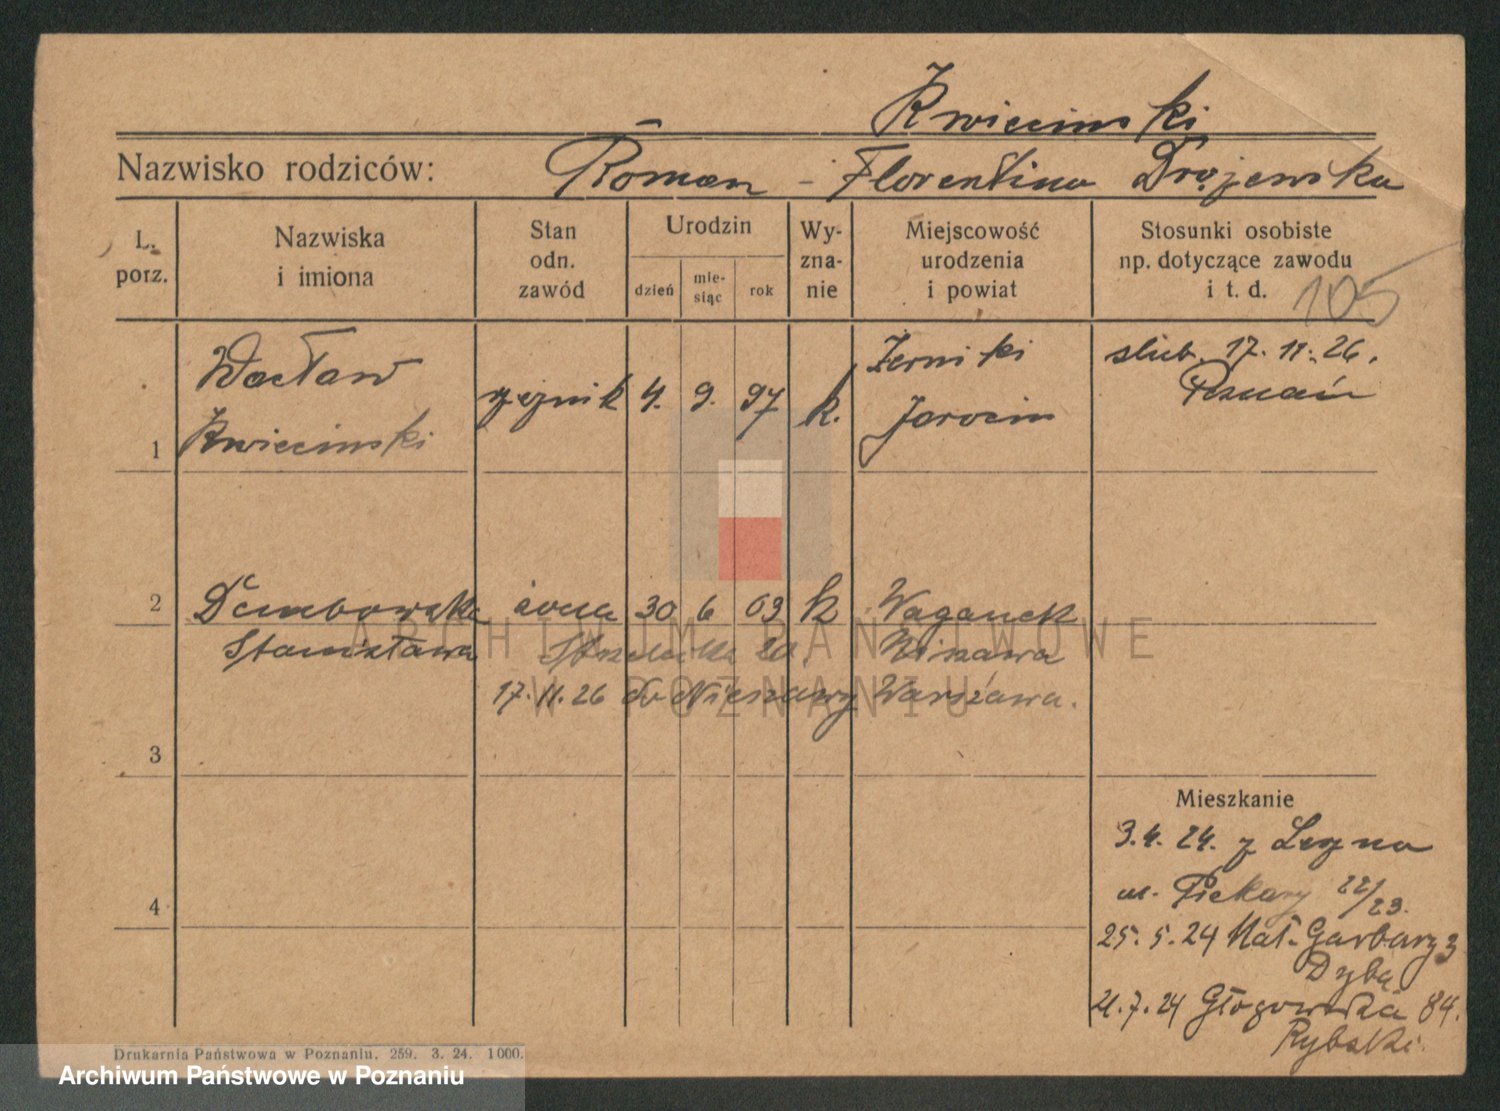 Kwiecinski
Nazwisko rodziców: Roman - Florentina Drojewska
L. porz.
Nazwiska i imiona
Stan odn. zawód
Urodzin
dzień
mie-siąc
rok
Wy-zna-nie
Miejscowość urodzenia i powiat
Stosunki osobiste np. dotyczące zawodu i t. d.
105
1
Wacław
Kwiecinski
4. 9. 97
k.
Zerniki
Jarocin
slub. 17. 11. 26.
Poznań
2
Dembowska
Stanisława
żona 30 6 03 k
Waganek
Niszawa
Warszawa.
17. 11. 26 do Nieszawy
3
4
Mieszkanie
3. 4. 24. z Leszna
ul. Piekary 22/23.
25. 5. 24 Mał. Garbary 3
Dyba
21. 7. 24 Głogowska 84.
Rybski.
ARCHIWUM PAŃSTWOWE
W POZNANIU
Drukarnia Państwowa w Poznaniu. 259. 3. 24. 1000.
Archiwum Państwowe w Poznaniu